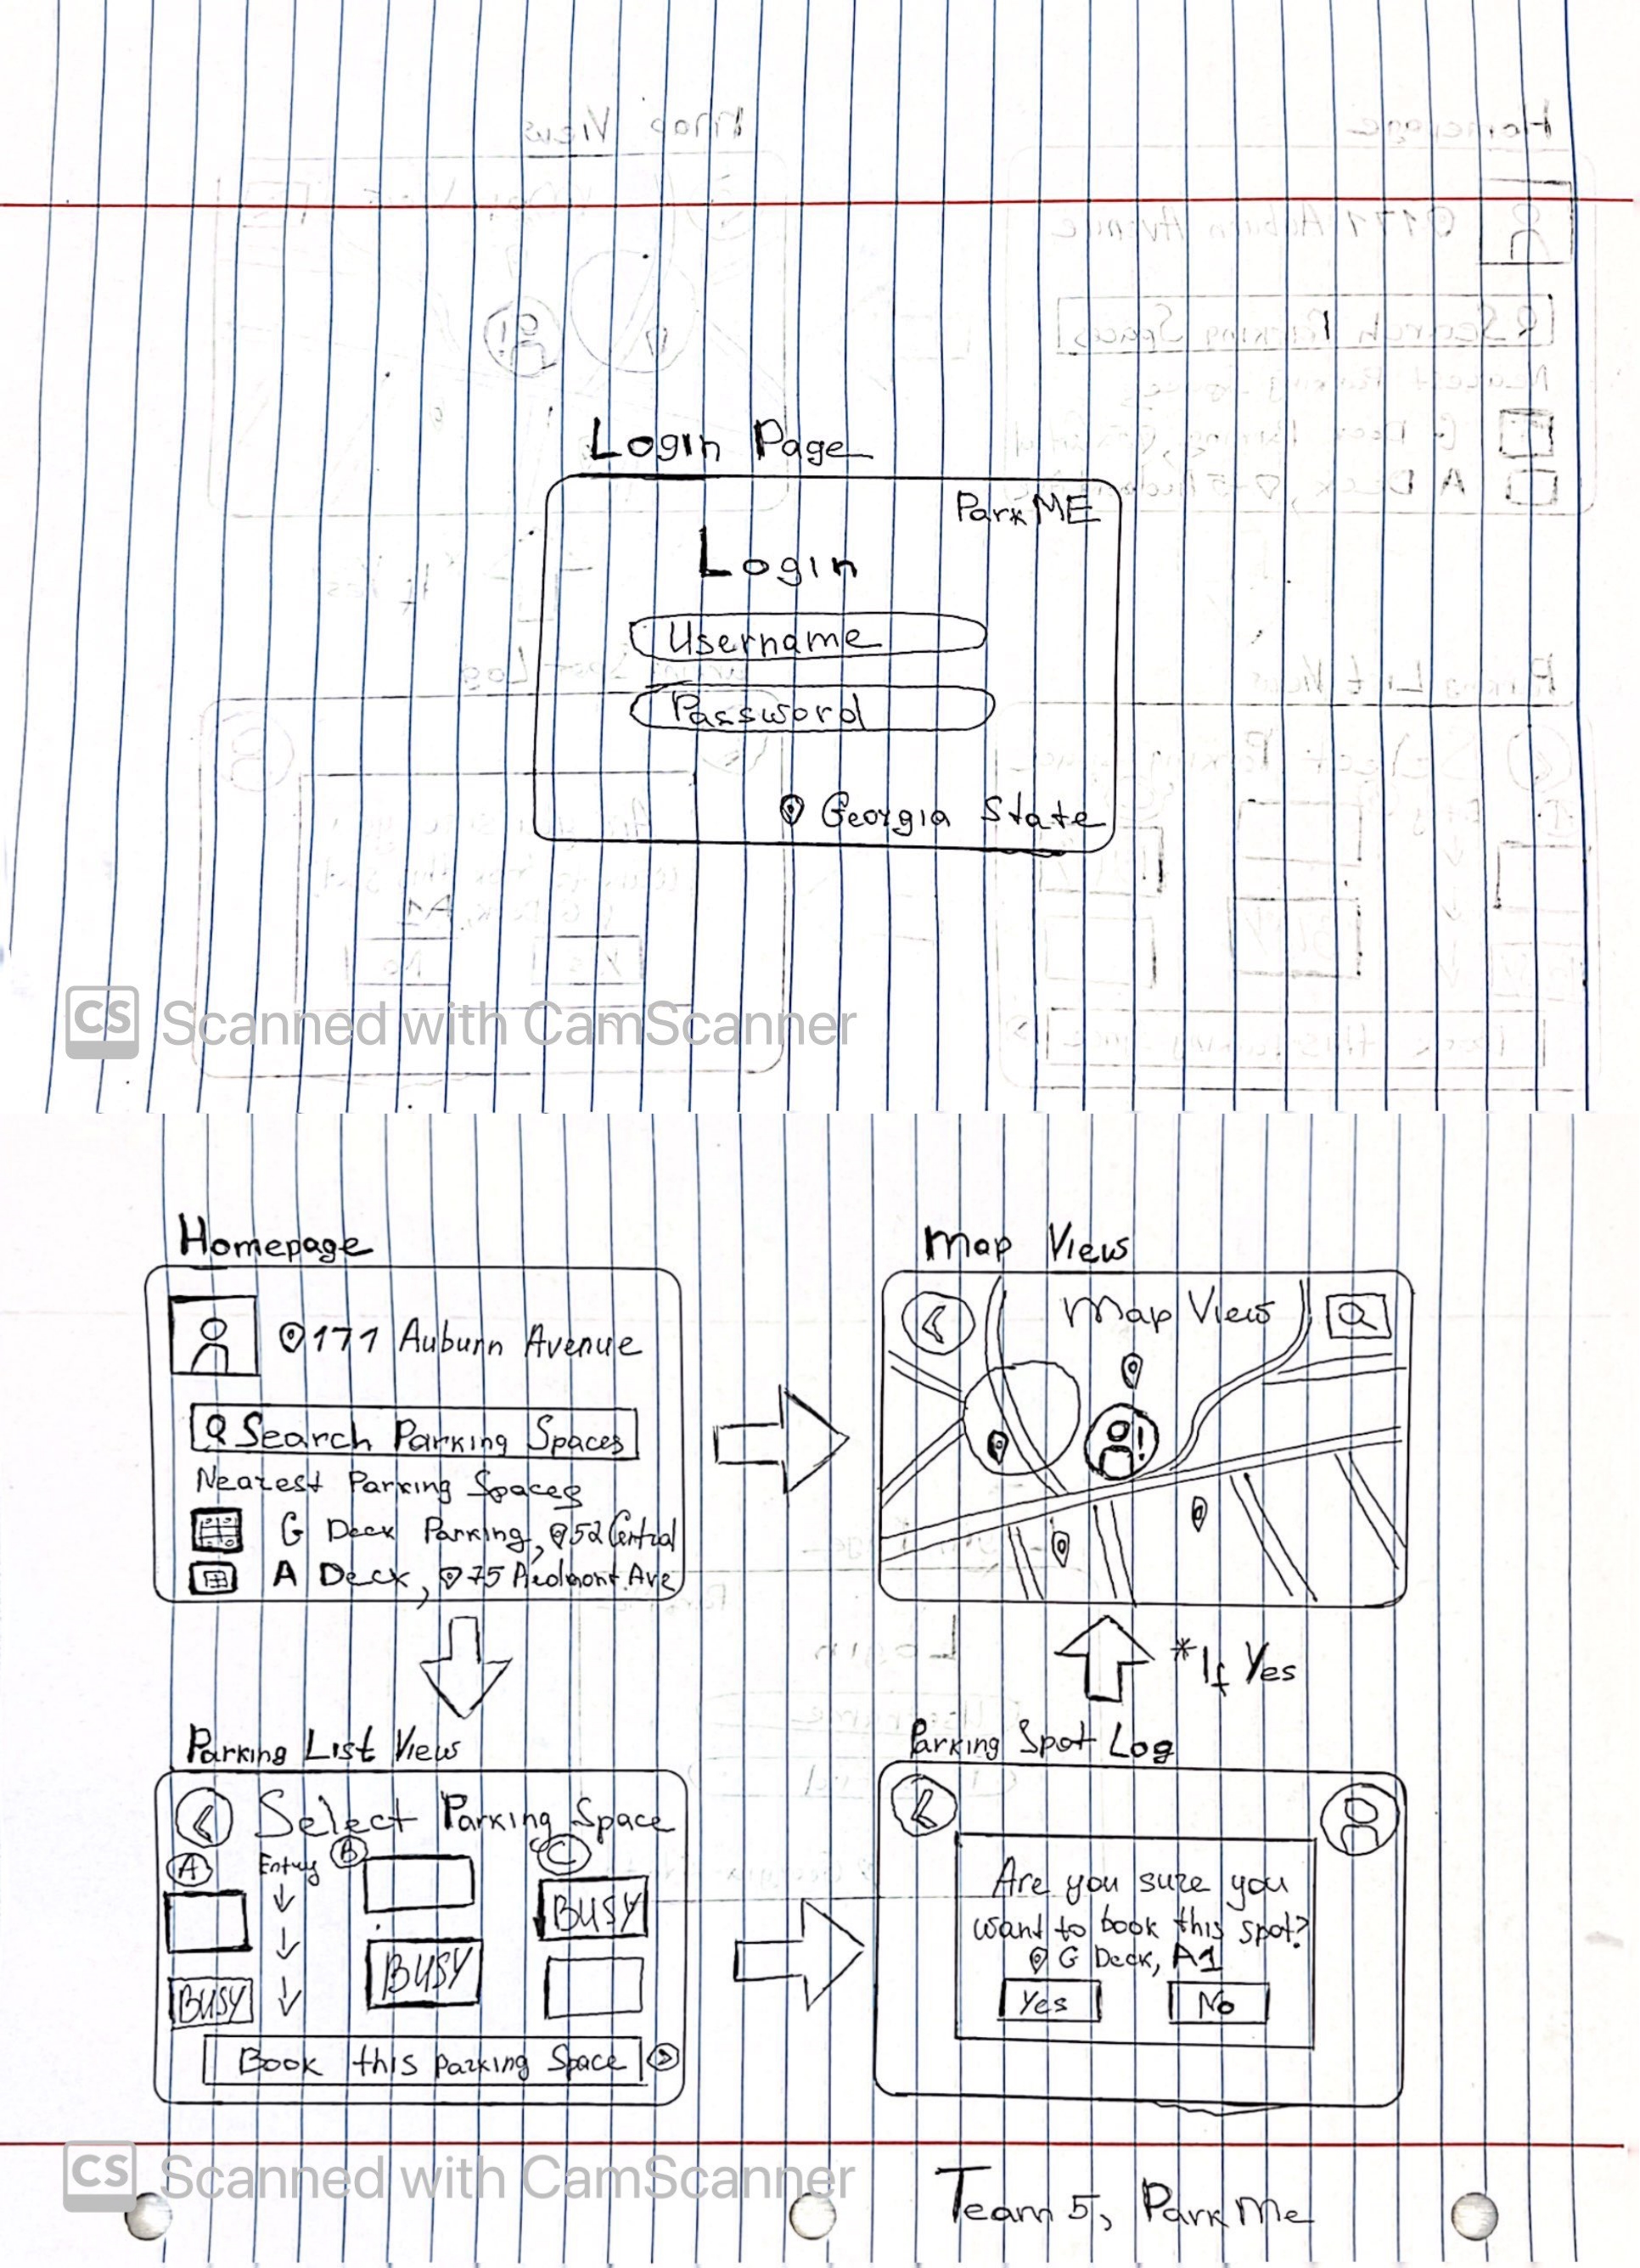 Login Page
ParkME
Login
Username
Password
Georgia State
CS Scanned with CamScanner
Homepage
171 Auburn Avenue
Search Parking Spaces
Nearest Parking Spaces
G Deck Parking, 52 Central
A Deck, 75 Piedmont Ave
Map View
Map View
*If Yes
Parking List View
Select Parking Space
A Entry B C
BUSY
BUSY
BUSY
Book this parking Space
Parking Spot Log
Are you sure you
want to book this spot?
G Deck, A1
Yes No
CS Scanned with CamScanner
Team 5, ParkMe